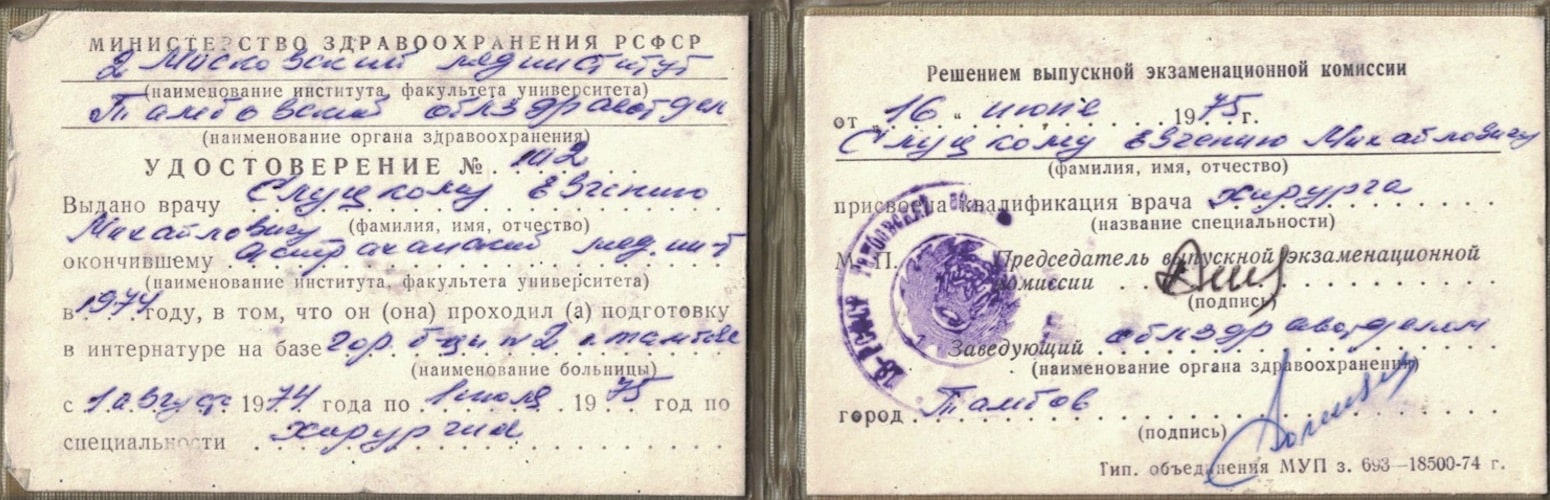 МИНИСТЕРСТВО ЗДРАВООХРАНЕНИЯ РСФСР
2 Московский мединститут
(наименование института, факультета университета)
Тамбовский облздравотдел
(наименование органа здравоохранения)
УДОСТОВЕРЕНИЕ №
Выдано врачу Слуцкому Евгению
Михайловичу (фамилия, имя, отчество)
окончившему Астраханский мед. ин-т
(наименование института, факультета университета)
в 1974 году, в том, что он (она) проходил (а) подготовку
в интернатуре на базе гор. б-цы №2 г. Тамбова
(наименование больницы)
с 1 август 1974 года по 1 июля 1975 год по
специальности хирургия
Решением выпускной экзаменационной комиссии
от „16“ июне 1975 г.
Слуцкому Евгению Михайловичу
(фамилия, имя, отчество)
присвоена квалификация врача хирурга
(название специальности)
М. П. Председатель выпускной экзаменационной
комиссии
(подпись)
Заведующий облздравотделом
(наименование органа здравоохранения)
город Тамбов
(подпись)
Тип. объединения МУП з. 693—18500-74 г.